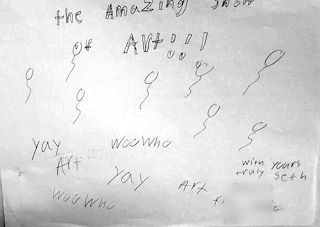 the Amazing Show
of Art!!!
yay woowho
Art
yay
woowho
Art
with yours
truly seth